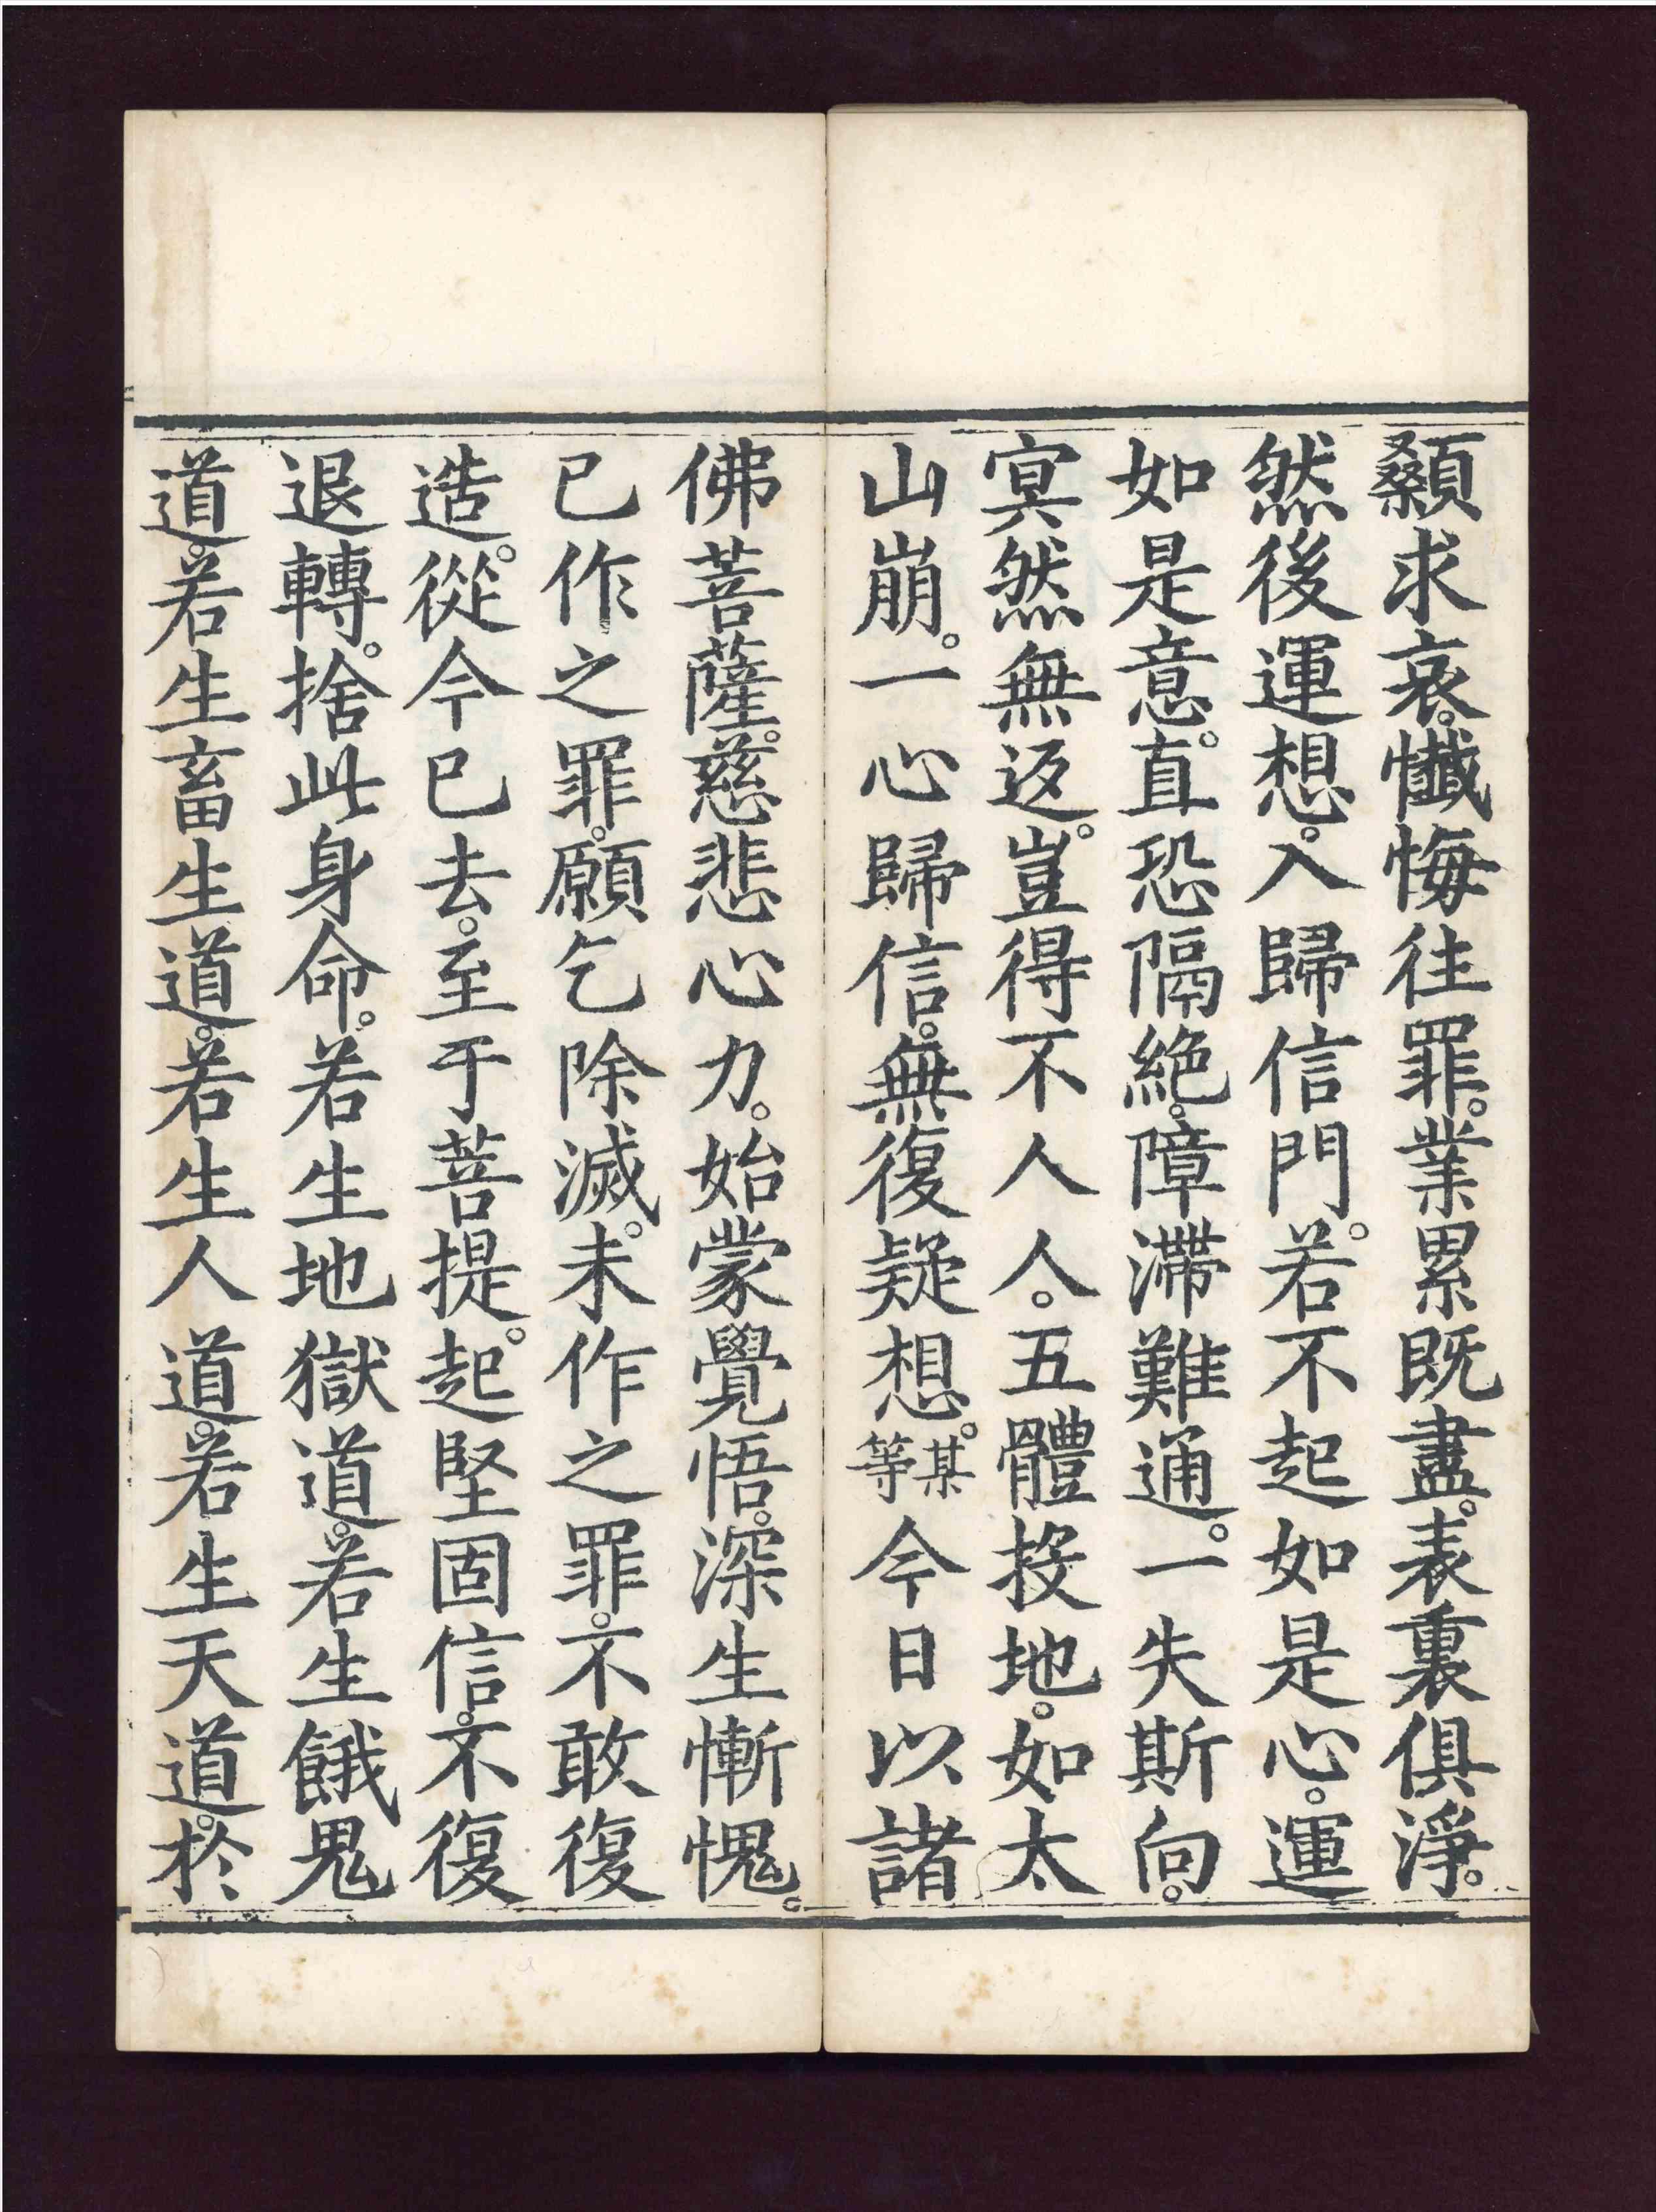 顙求哀。懺悔往罪。業累既盡。表裏俱淨。
然後運想。入歸信門。若不起如是心。運
如是意。直恐隔絕。障滯難通。一失斯向。
冥然無返。豈得不人人。五體投地。如太
山崩。一心歸信。無復疑想。某等今日以諸
佛菩薩。慈悲心力。始蒙覺悟。深生慚愧。
已作之罪。願乞除滅。未作之罪。不敢復
造。從今已去。至于菩提。起堅固信。不復
退轉。捨此身命。若生地獄道。若生餓鬼
道。若生畜生道。若生人道。若生天道。於